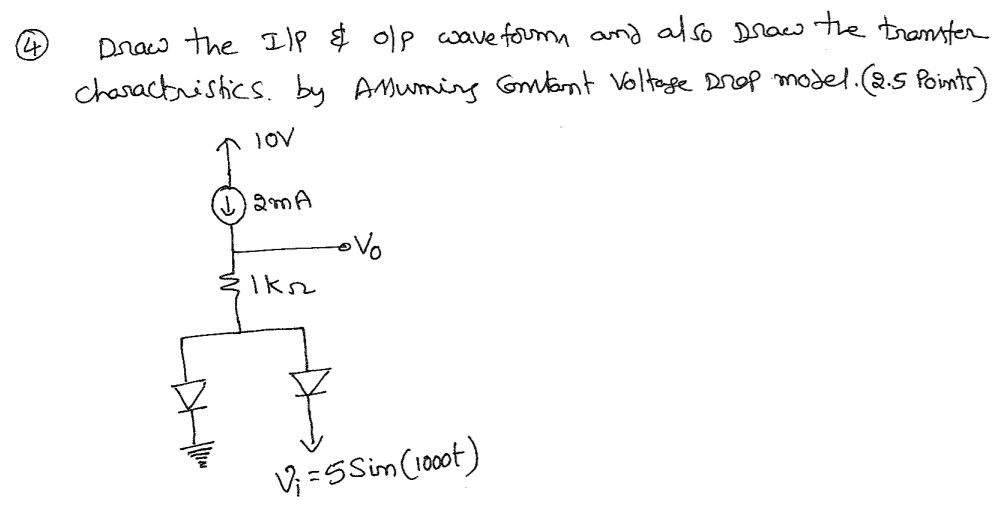 ④ Draw the I/P & O/P waveform and also Draw the transfer
characteristics. by Assuming Constant Voltage Drop model. (2.5 Points)
10V
2mA
Vo
1kΩ
Vi = 5 Sin(1000t)